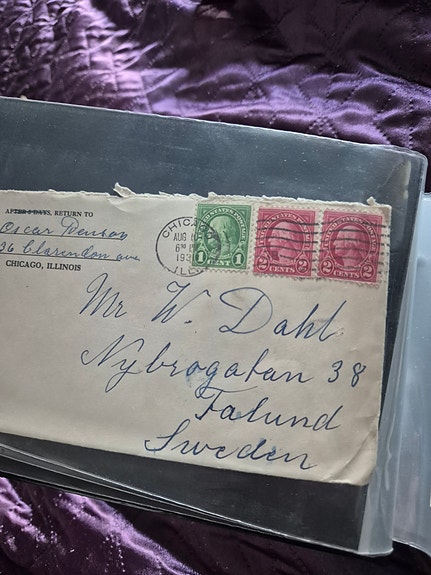 AFTER 5 DAYS, RETURN TO
Oscar Denson
36 Clarendon ave
CHICAGO, ILLINOIS
CHICA
AUG
6 PM
193
ILL
UNITED STATES POSTAGE
1 CENT 1
UNITED STATES POSTAGE
2 CENTS 2
UNITED STATES POSTAGE
2 CENTS 2
Mr W. Dahl
Nybrogatan 38
Falund
Sweden